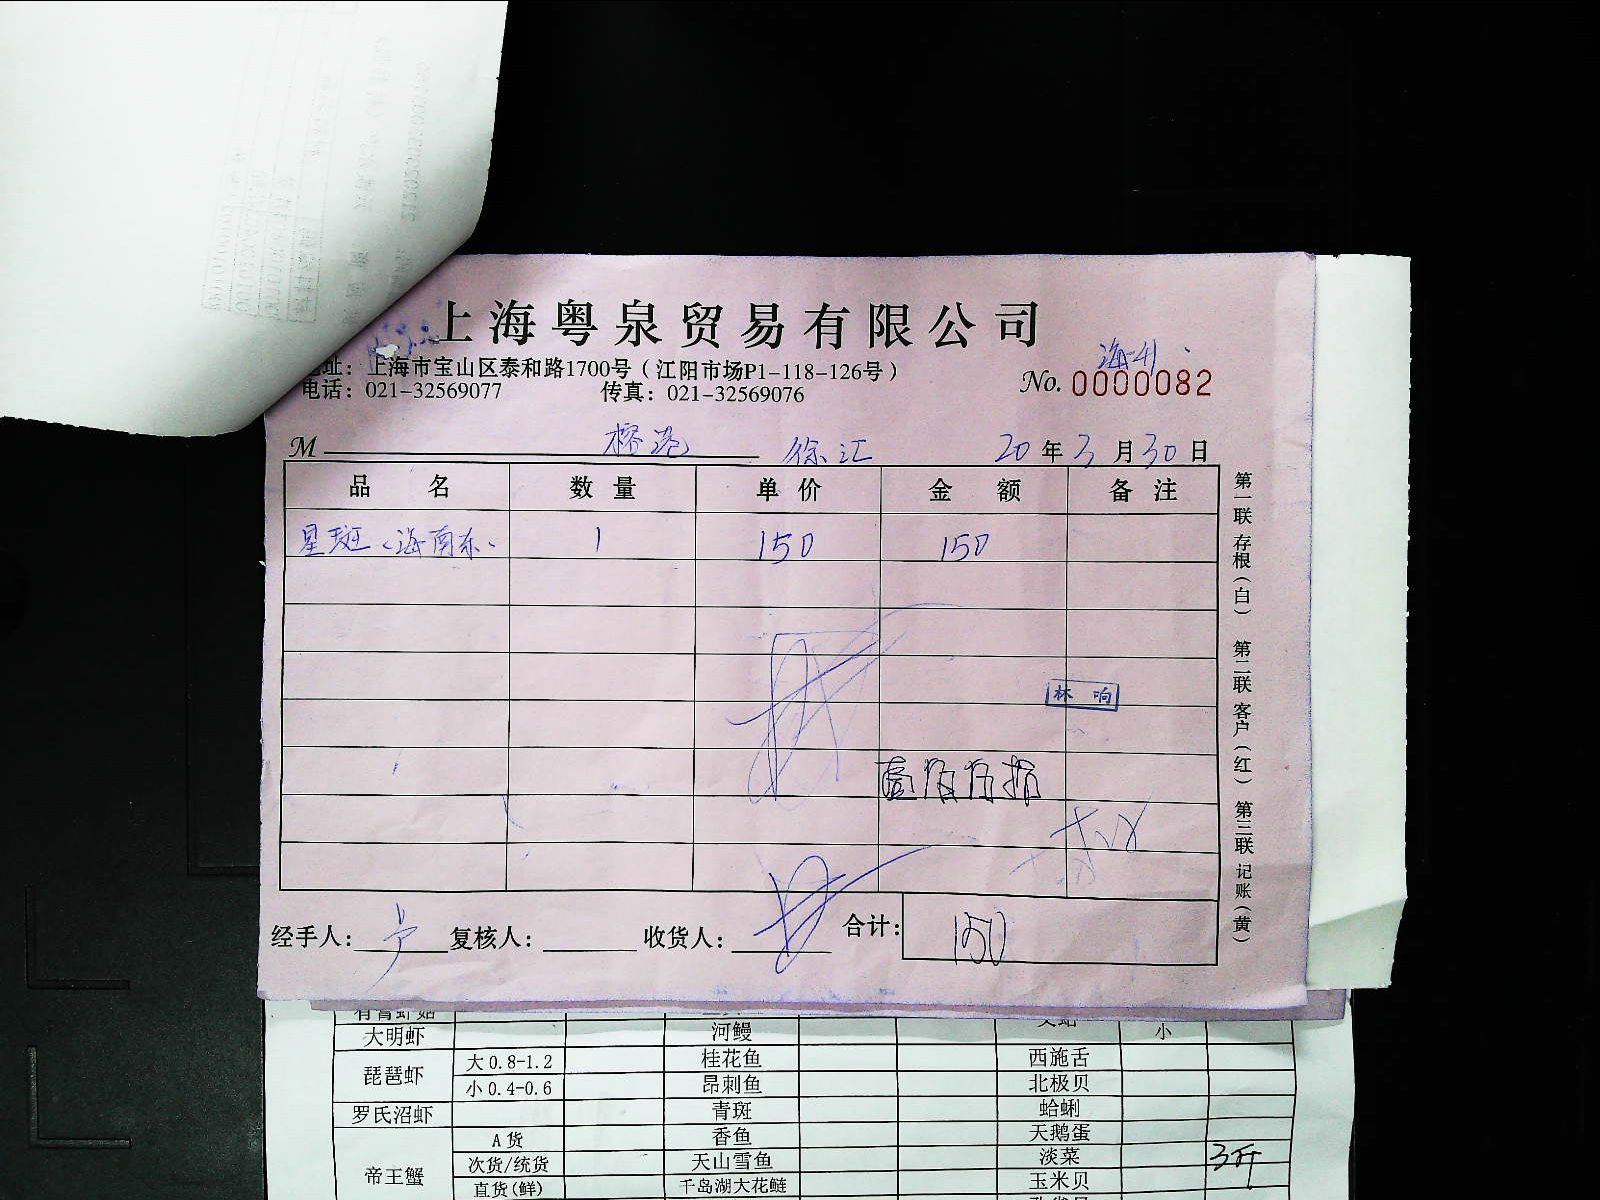 上海粤泉贸易有限公司
址：上海市宝山区泰和路1700号（江阳市场P1-118-126号）
电话：021-32569077 传真：021-32569076
No. 0000082
M 榕港 徐汇 20年3月30日
品名 数量 单价 金额 备注
星斑（海南东） 1 150 150
林响
壹佰伍拾
经手人： 复核人： 收货人： 合计：150
第一联 存根（白） 第二联 客户（红） 第三联 记账（黄）
大明虾 河鳗 小
琵琶虾 大0.8-1.2 桂花鱼 西施舌
小0.4-0.6 昂刺鱼 北极贝
罗氏沼虾 青斑 蛤蜊
帝王蟹 A货 香鱼 天鹅蛋
次货/统货 天山雪鱼 淡菜 3斤
直货(鲜) 千岛湖大花鲢 玉米贝